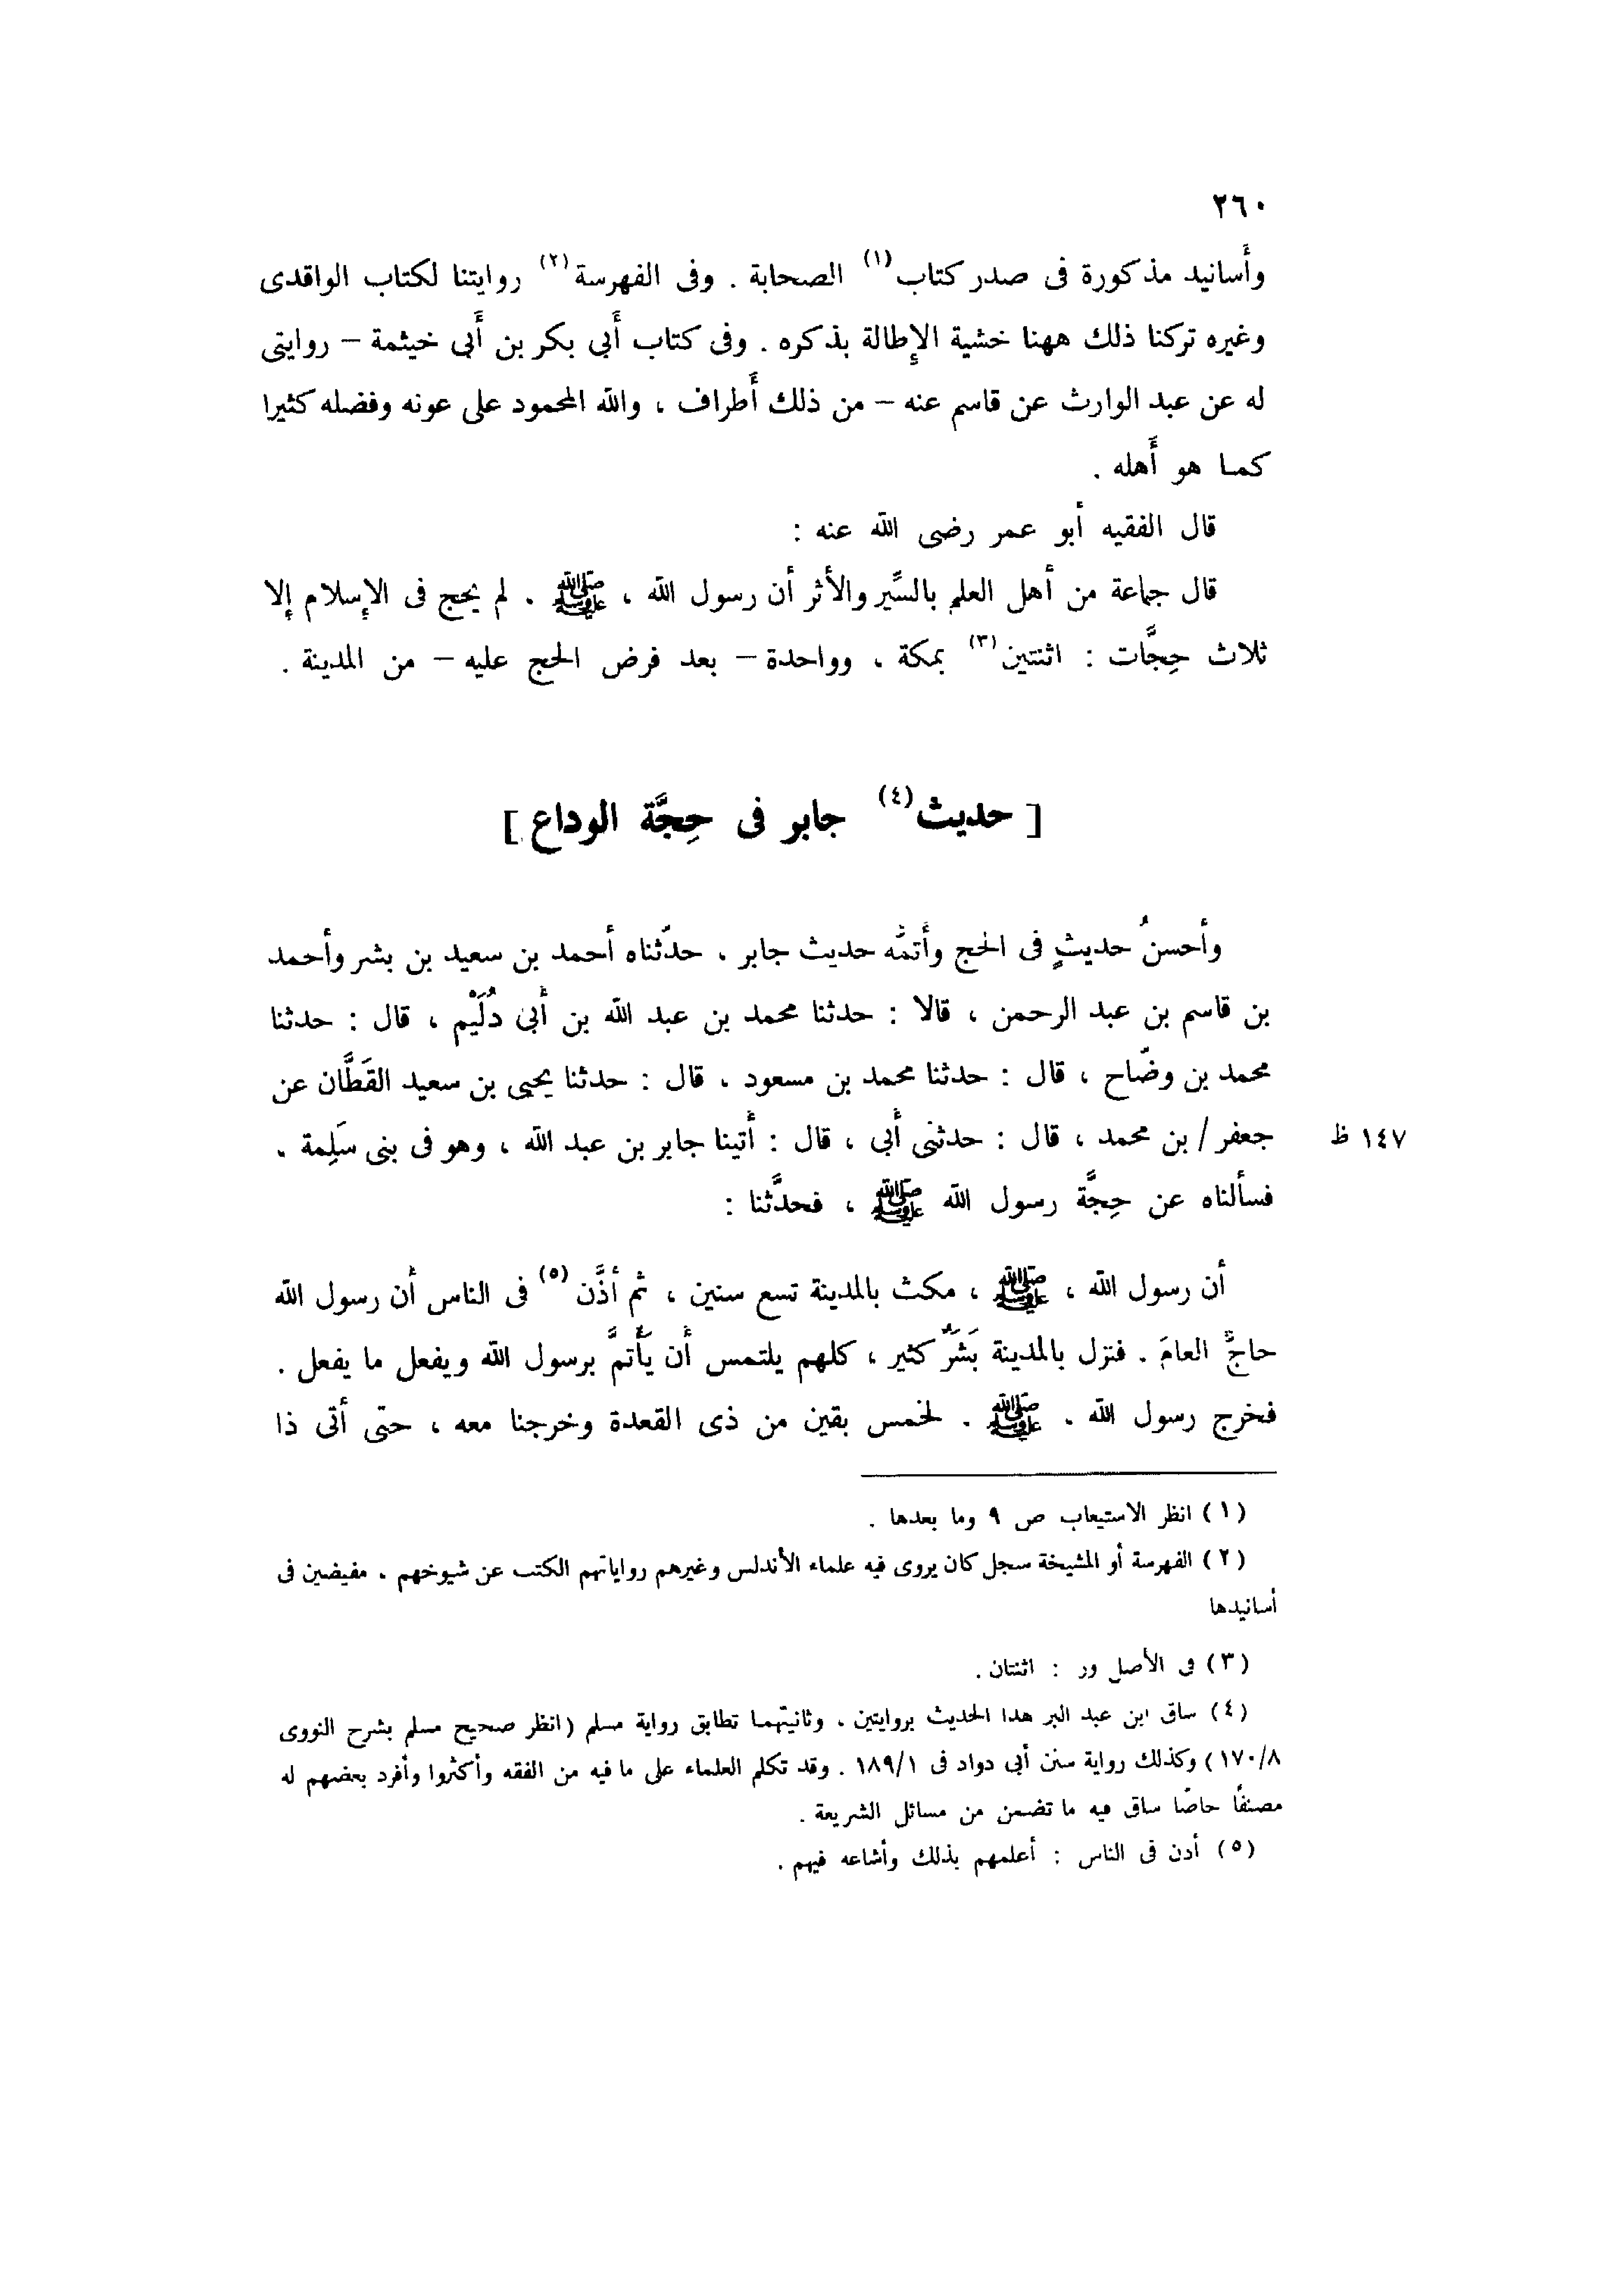 ٢٦٠
وأَسانيد مذكورة فى صدر كتاب(١) الصحابة . وفى الفهرسة(٢) روايتنا لكتاب الواقدى
وغيره تركنا ذلك ههنا خشية الإِطالة بذكره . وفى كتاب أَبى بكر بن أَبى خيثمة – روايتى
له عن عبد الوارث عن قاسم عنه – من ذلك أَطراف ، والله المحمود على عونه وفضله كثيرا
كما هو أَهله .
قال الفقيه أبو عمر رضى الله عنه :
قال جماعة من أهل العلم بالسِّير والأثر أن رسول الله ، ﷺ . لم يحج فى الإسلام إلا
ثلاث حِجَّات : اثنتين(٣) بمكة ، وواحدة – بعد فرض الحج عليه – من المدينة .
[ حديث(٤) جابر فى حِجَّة الوداع ]
وأحسنُ حديثٍ فى الحج وأَتمُّه حديث جابر ، حدّثناه أحمد بن سعيد بن بشر وأحمد
بن قاسم بن عبد الرحمن ، قالا : حدثنا محمد بن عبد الله بن أَبى دُلَيْم ، قال : حدثنا
محمد بن وضّاح ، قال : حدثنا محمد بن مسعود ، قال : حدثنا يحيى بن سعيد القَطَّان عن
جعفر / بن محمد ، قال : حدثنى أَبى ، قال : أَتينا جابر بن عبد الله ، وهو فى بنى سَلِمة ، ١٤٧ ظ
فسألناه عن حِجَّة رسول الله ﷺ ، فحدَّثنا :
أن رسول الله ، ﷺ ، مكث بالمدينة تسع سنين ، ثم أذَّن(٥) فى الناس أن رسول الله
حاجٌّ العامَ . فنزل بالمدينة بَشَرٌ كثير ، كلهم يلتمس أَن يَأْتمَّ برسول الله ويفعل ما يفعل .
فخرج رسول الله . ﷺ . لخمس بقين من ذى القعدة وخرجنا معه ، حتى أتى ذا
(١) انظر الاستيعاب ص ٩ وما بعدها .
(٢) الفهرسة أو المشيخة سجل كان يروى فيه علماء الأندلس وغيرهم رواياتهم الكتب عن شيوخهم ، مفيضين فى
أسانيدها
(٣) فى الأصل ور : اثنتان .
(٤) ساق ابن عبد البر هذا الحديث بروايتين ، وثانيتهما تطابق رواية مسلم (انظر صحيح مسلم بشرح النووى
١٧٠/٨) وكذلك رواية سنن أبى دواد فى ١٨٩/١ . وقد تكلم العلماء على ما فيه من الفقه وأكثروا وأفرد بعضهم له
مصنفًا خاصًا ساق فيه ما تضمن من مسائل الشريعة .
(٥) أذن فى الناس : أعلمهم بذلك وأشاعه فيهم .